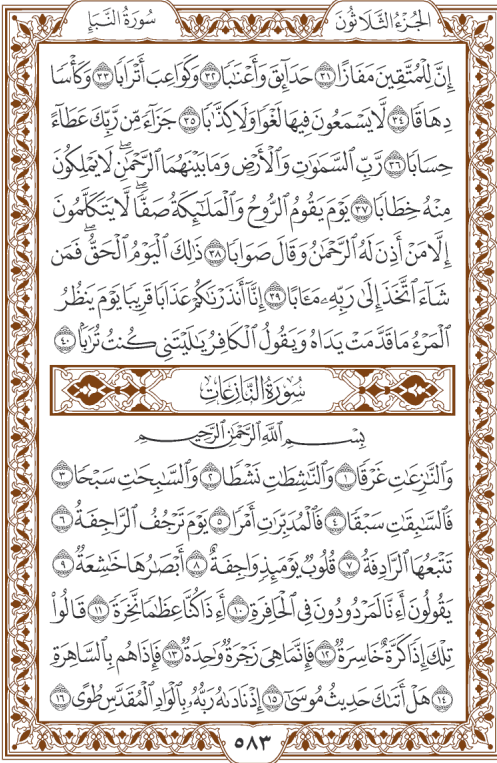 الجُزْءُ الثَّلَاثُونَ سُورَةُ النَّبَإِ
إِنَّ لِلْمُتَّقِينَ مَفَازًا ٣١ حَدَآئِقَ وَأَعْنَٰبًا ٣٢ وَكَوَاعِبَ أَتْرَابًا ٣٣ وَكَأْسًا
دِهَاقًا ٣٤ لَّا يَسْمَعُونَ فِيهَا لَغْوًا وَلَا كِذَّٰبًا ٣٥ جَزَآءً مِّن رَّبِّكَ عَطَآءً
حِسَابًا ٣٦ رَّبِّ ٱلسَّمَٰوَٰتِ وَٱلْأَرْضِ وَمَا بَيْنَهُمَا ٱلرَّحْمَٰنِ ۖ لَا يَمْلِكُونَ
مِنْهُ خِطَابًا ٣٧ يَوْمَ يَقُومُ ٱلرُّوحُ وَٱلْمَلَٰٓئِكَةُ صَفًّا ۖ لَّا يَتَكَلَّمُونَ
إِلَّا مَنْ أَذِنَ لَهُ ٱلرَّحْمَٰنُ وَقَالَ صَوَابًا ٣٨ ذَٰلِكَ ٱلْيَوْمُ ٱلْحَقُّ ۖ فَمَن
شَآءَ ٱتَّخَذَ إِلَىٰ رَبِّهِۦ مَـَٔابًا ٣٩ إِنَّآ أَنذَرْنَٰكُمْ عَذَابًا قَرِيبًا يَوْمَ يَنظُرُ
ٱلْمَرْءُ مَا قَدَّمَتْ يَدَاهُ وَيَقُولُ ٱلْكَافِرُ يَٰلَيْتَنِى كُنتُ تُرَٰبًۢا ٤٠
سُورَةُ النَّازِعَاتِ
بِسْمِ ٱللَّهِ ٱلرَّحْمَٰنِ ٱلرَّحِيمِ
وَٱلنَّٰزِعَٰتِ غَرْقًا ١ وَٱلنَّٰشِطَٰتِ نَشْطًا ٢ وَٱلسَّٰبِحَٰتِ سَبْحًا ٣
فَٱلسَّٰبِقَٰتِ سَبْقًا ٤ فَٱلْمُدَبِّرَٰتِ أَمْرًا ٥ يَوْمَ تَرْجُفُ ٱلرَّاجِفَةُ ٦
تَتْبَعُهَا ٱلرَّادِفَةُ ٧ قُلُوبٌ يَوْمَئِذٍ وَاجِفَةٌ ٨ أَبْصَٰرُهَا خَٰشِعَةٌ ٩
يَقُولُونَ أَءِنَّا لَمَرْدُودُونَ فِى ٱلْحَافِرَةِ ١٠ أَءِذَا كُنَّا عِظَٰمًا نَّخِرَةً ١١ قَالُوا۟
تِلْكَ إِذًا كَرَّةٌ خَاسِرَةٌ ١٢ فَإِنَّمَا هِىَ زَجْرَةٌ وَٰحِدَةٌ ١٣ فَإِذَا هُم بِٱلسَّاهِرَةِ
١٤ هَلْ أَتَىٰكَ حَدِيثُ مُوسَىٰٓ ١٥ إِذْ نَادَىٰهُ رَبُّهُۥ بِٱلْوَادِ ٱلْمُقَدَّسِ طُوًى ١٦
٥٨٣